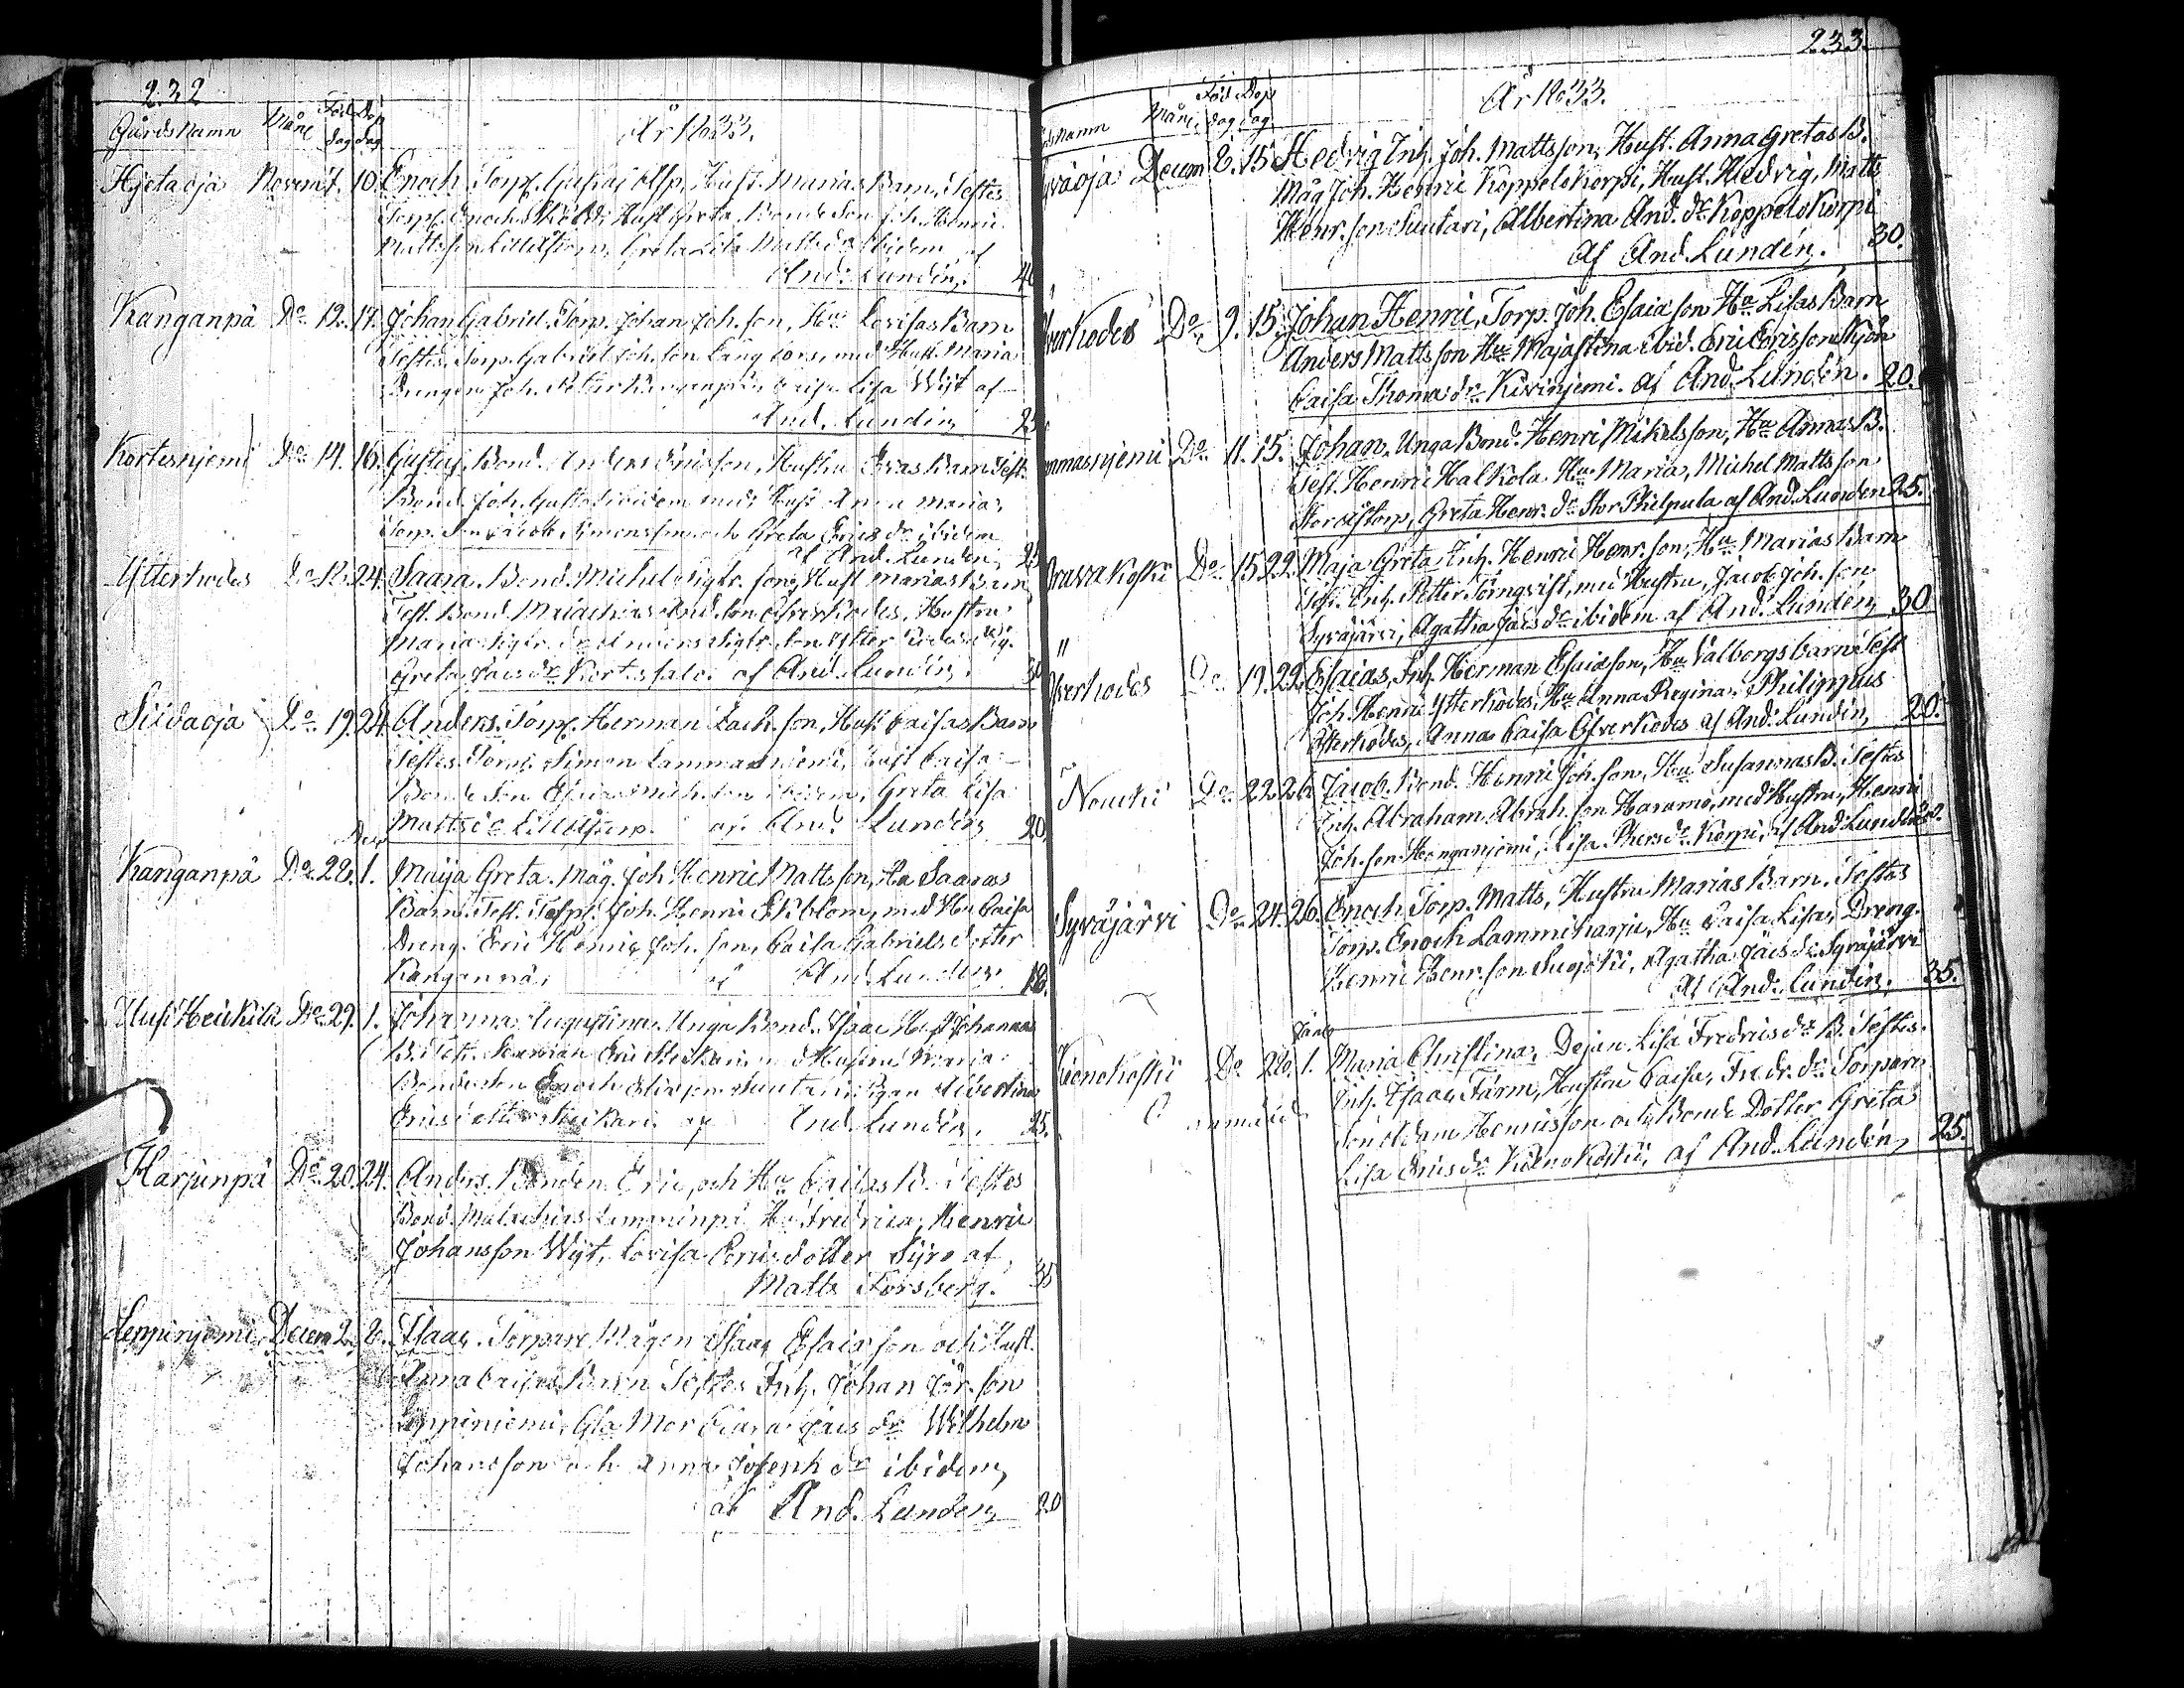 232
Gårds Namn Mån. Föd. dag Dop dag År 1833.
Hjetaoja Novem 7. 10. Enoch Torp. Hust. Marias Barn, Testes
Torp. Enoch Hust Greta Bonde Son Joh. Henric
Mattsson Lillåstorp, Greta Lisa Matts dr ibidem af
And. Lundén, 40
Kanganpä Do 12. 17. Johan Gabriel. Torp. Johan Joh.son, Hu Lovisas Barn
Testes. Torp. Gabriel Joh.son Långfors, med Hust. Maria
Drengen Joh. Petter Kanganpä, Caisa Lisa Wijt af
And. Lundén 25
Kortesnjemi Do 14. 16. Gustaf, Bond. Anders Ericsson, Hustru Evas Barn Test.
Bond. Joh. Gustafs ibidem med Hust Anna Maria,
Torp. Son Jacob Simonsson och Greta Erics dr ibidem
af And. Lundén, 25
Ytterkodes Do 18. 24. Saara. Bond. Michel Sigfr. son, Hust Marias Barn
Test. Bond Malachias And. son Öfverkodes, Hustru
Maria Sigfr. dr Anders Sigfr. son Ytterkodes, Pig.
Greta Jacs dr af And. Lundén. 30
Siidaoja Do 19. 24. Anders. Torp. Herman Zach.son, Hust Caisas Barn
Testes. Torp. Simon Lammasniemi, Hust Caisa
Bonde Son Esaias Mich.son ibidem, Greta Lisa
Matts dr Lillåstorp. af And. Lundén 20
Dec
Kanganpä Do 28. 1. Maija Greta. Måg. Joh. Henric Mattsson, Hu Saaras
Barn. Test. Torp. Joh. Henric Ekblom, med Hu Caisa
Dreng. Eric Henric Joh. son, Caisa Gabriels dotter
Kanganpä, af And. Lundén. 18.
Uusi Heickilä Do 29. 1. Johanna Augustina. Unga Bond. Isaac Hust Johannas
B. Test. Eric Heickari med Hustru Maria.
Bonde Son Enoch Suutari, Pigan Albertina
Ericsdotter Heickari af And. Lundén. 25.
Harjunpä Do 20. 24. Anders. Bonden Eric, och Hu Caisas B. Testes
Bond. Malachias Lamminpä Hu Fredrica, Henric
Johansson Wijt, Lovisa Ericsdotter Syre af
Matts Forsberg. 35
Leppinjemi Decem 2. 8. Isaac. Torpare Mågen Isaac Esaiæson och Hust.
Anna Caisas Barn Testes Inh. Johan Jör.son
Leppiniemi, Gla Mor Caisa Jacs dr Wilhelm
Johansson och Anna Joseph dr ibidem,
af And. Lundén 20
233.
Namn Mån. Föd dag Dop dag År 1833.
Syväoja Decem 8. 15 Hedvig Inh. Joh. Mattsson, Hust. Anna Gretas B.
Måg Joh. Henric Koppelokorpi, Hust. Hedvig, Matts
Henr.son Suutari, Albertina And. dr Koppelokorpi
Af And. Lundén. 30.
Öfverkodes Do 9. 15. Johan Henric, Torp. Joh. Esaiæson Hu Lisas Barn
Anders Mattsson Hu Majastina ibid. Eric Ericsson
Caisa Thomæ dr Kivinjemi. af And. Lundén. 20.
Lammasnjemi Do 11. 15. Johan, Unga Bond. Henric Mikelsson, Hu Annas B.
Test. Henric Halkola Hu Maria, Michel Mattsson
Storåstorp, Greta Henr. dr Stor Philpula af And. Lunden 25.
Oravakoski Do 15 22. Maja Greta. Inh. Henric Henr.son, Hu Marias Barn
Test. Inh. Petter Törnqvist, med Hustru, Jacob Joh.son
Syväjärvi, Agatha Jacs dr ibidem af And. Lundén, 30
Öfverkodes Do 19. 22. Esaias, Inh. Herman Esaiæson, Hu Valborgs barn Test
Joh. Henric Ytterkodes, Hu Anna Regina, Philippus
Ytterkodes, Anna Caisa Öfverkodes af And. Lundén, 20.
Nowki Do 22 26 Jacob. Bond. Henric Joh.son, Hu Susannas B. Testes
Inh. Abraham Abrah.son Haramo, med Hustru, Henric
Joh.son Honganjemi, Lisa Phers dr Korpi, af And. Lundén 20.
Syväjärvi Do 24. 26. Enoch. Torp. Matts, Hustru Marias Barn. Testes
Torp. Enoch Lammiharju, Hu Caisa Lisa, Dreng.
Henric Henr.son Suojoki, Agatha Jacs dr Syväjärvi
Af And. Lundén. 35.
Janu
Kienokoski Do 28. 1. Maria Christina, Dejan Lisa Fredrics dr B. Testes.
Inh. Isaac Färm, Hustru Caisa, Fredr. dr Torpare
Son Adam Henricsson och Bonde Dotter Greta
Lisa Erics dr Kienokoski, af And. Lundén, 25.